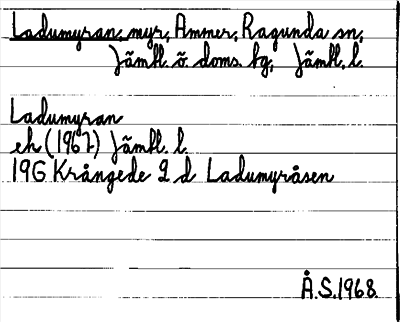 Ladumyran, myr, Ammer, Ragunda sn,
Jämtl. ö. doms. bg, Jämtl. l.
Ladumyran
ek (1967) Jämtl. l.
19G Krångede 2 d Ladumyråsen
Å.S. 1968.